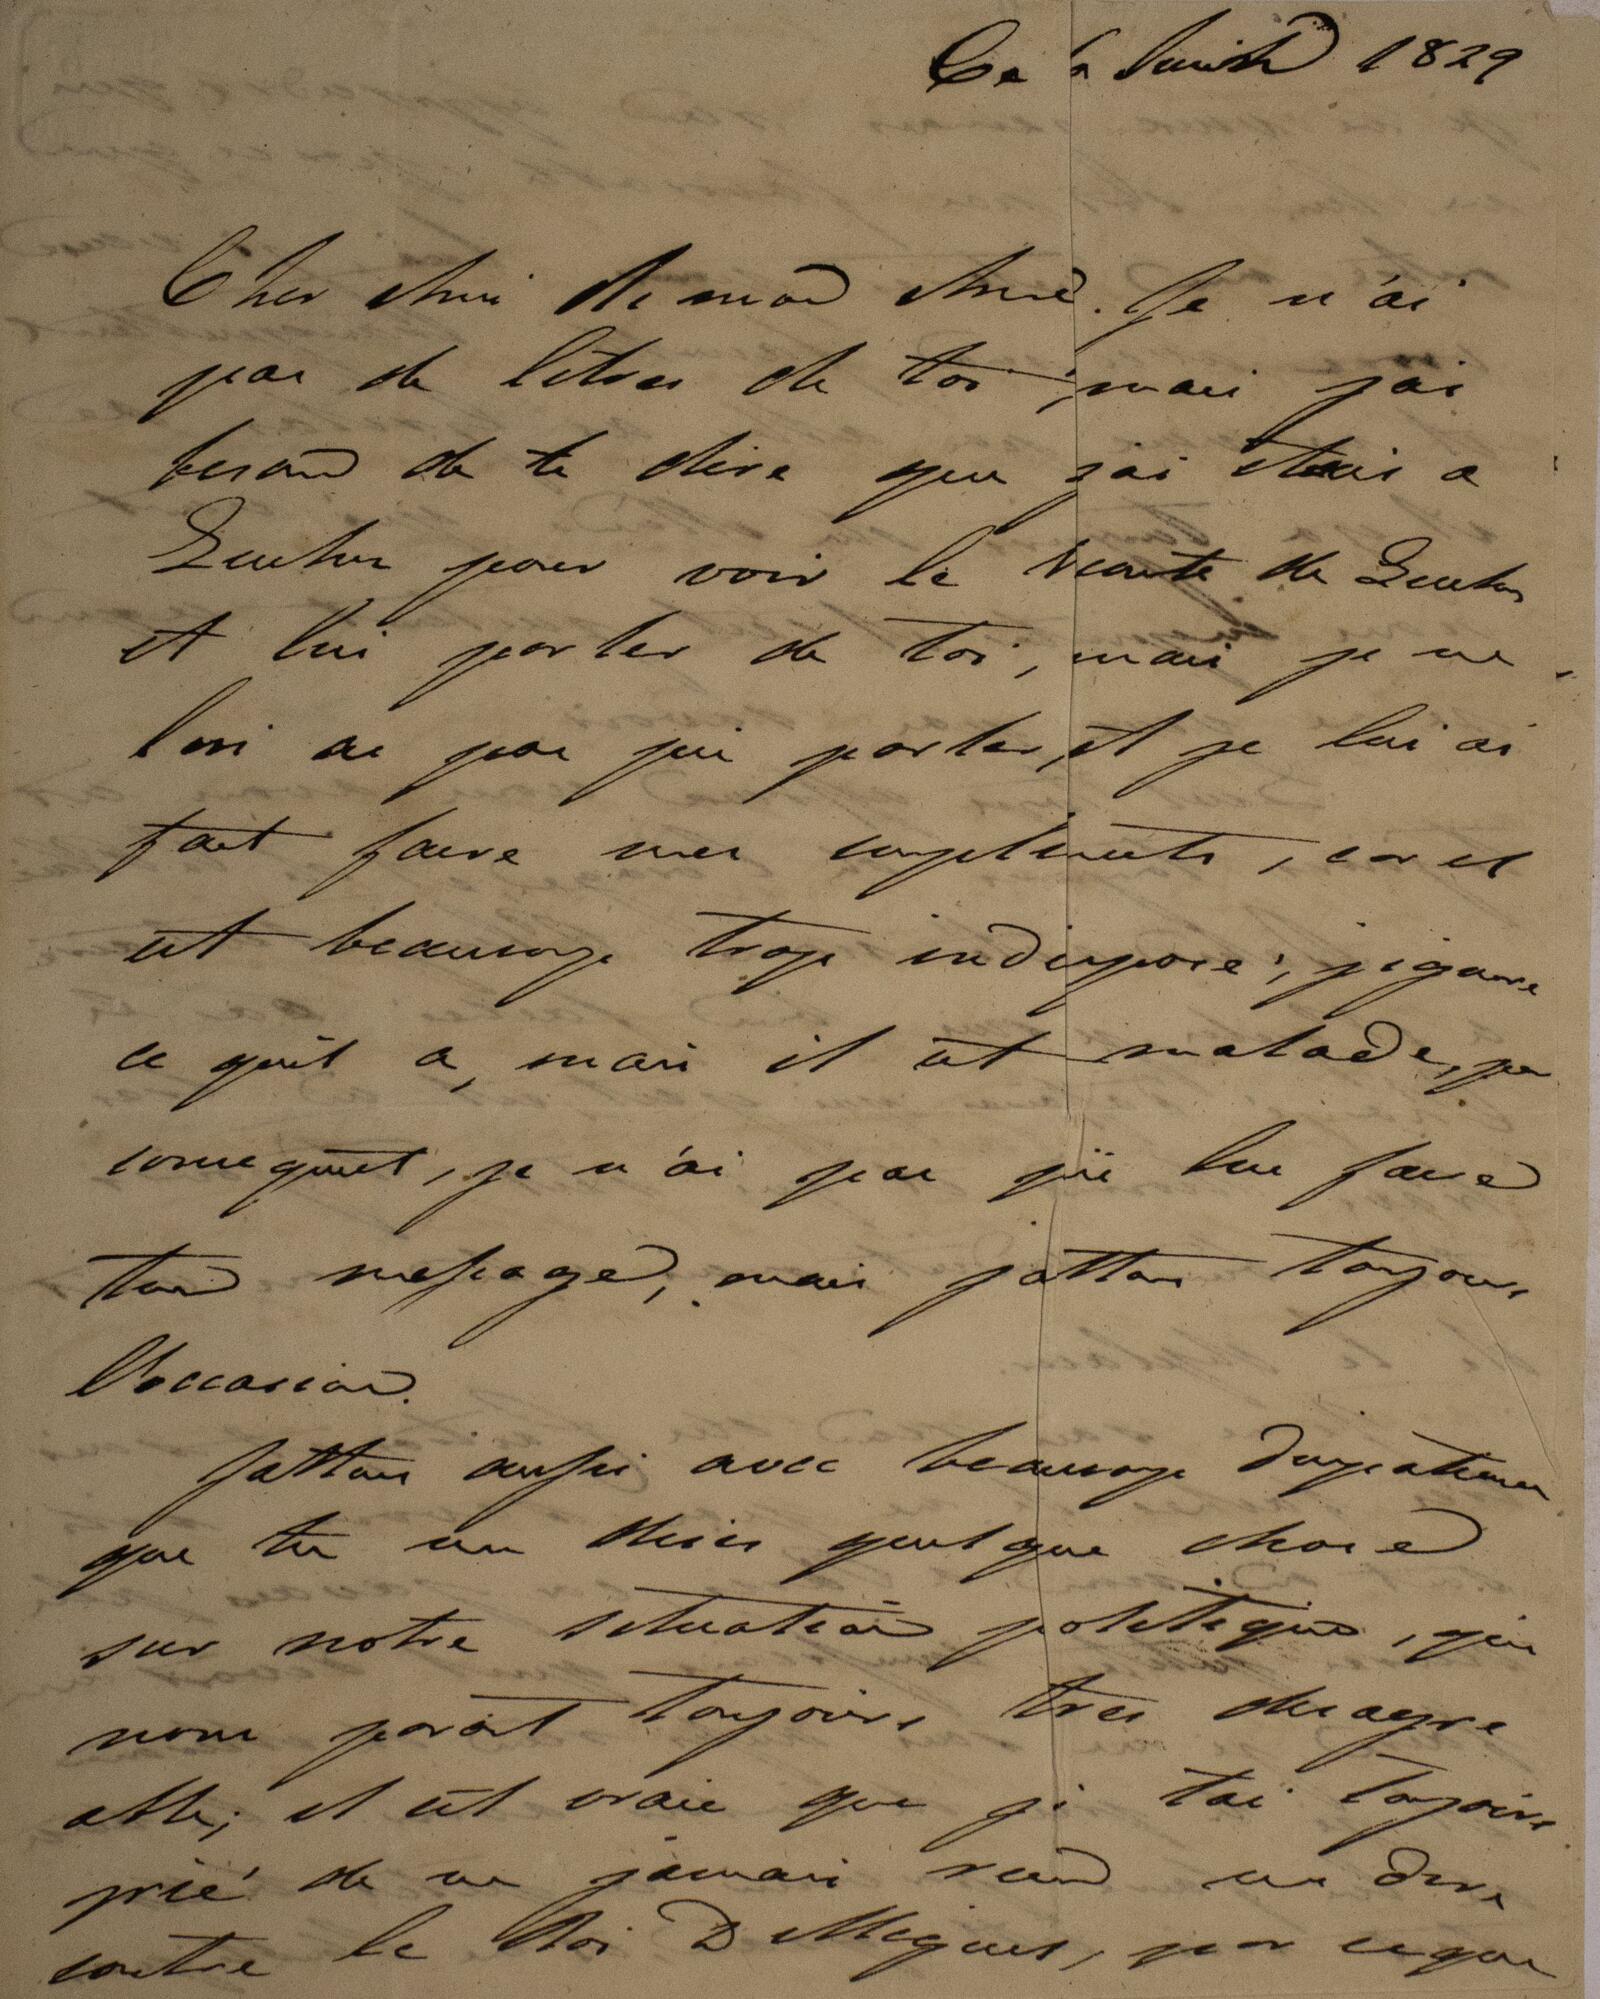 Ce 6 Juin 1829
Cher Ami de mon Ame. Je n'ai
pas de létres de toi, mais jai
besoin de te dire que jai étais a
Queluz pour voir le Vicomte de Queluz
et lui parler de toi, mais je ne
lui ai pas pui parler, et je lui ai
fait faire mes compliments, car il
est beaucoup trop indisposé; jignore
ce quil a, mais il est malade, par
consequent, je n'ai pas pû lui faire
ton message, mais jattans toujours
l'occasion.
Jattans aussi avec beaucoup dimpatience
que tu me dises quelque chose
sur notre situation politique, qui
nous parait toujours tres desagre
able; il est vraie que je tai toujours
prié de ne jamais rien me dire
contre le Roi D Miguel, par ce que